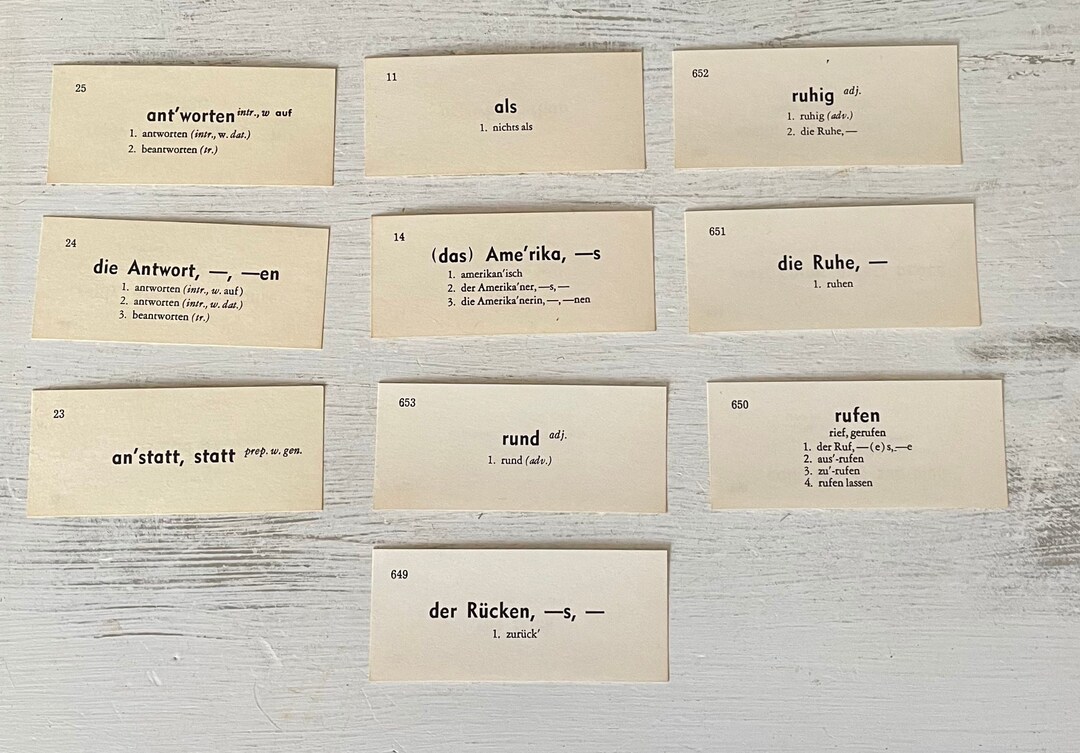 25
ant'worten intr., w auf
1. antworten (intr., w. dat.)
2. beantworten (tr.)
11
als
1. nichts als
652
ruhig adj.
1. ruhig (adv.)
2. die Ruhe, —
24
die Antwort, —, —en
1. antworten (intr., w. auf)
2. antworten (intr., w. dat.)
3. beantworten (tr.)
14
(das) Ame'rika, —s
1. amerikan'isch
2. der Amerika'ner, —s, —
3. die Amerika'nerin, —, —nen
651
die Ruhe, —
1. ruhen
23
an'statt, statt prep. w. gen.
653
rund adj.
1. rund (adv.)
650
rufen
rief, gerufen
1. der Ruf, —(e)s, —e
2. aus'-rufen
3. zu'-rufen
4. rufen lassen
649
der Rücken, —s, —
1. zurück'